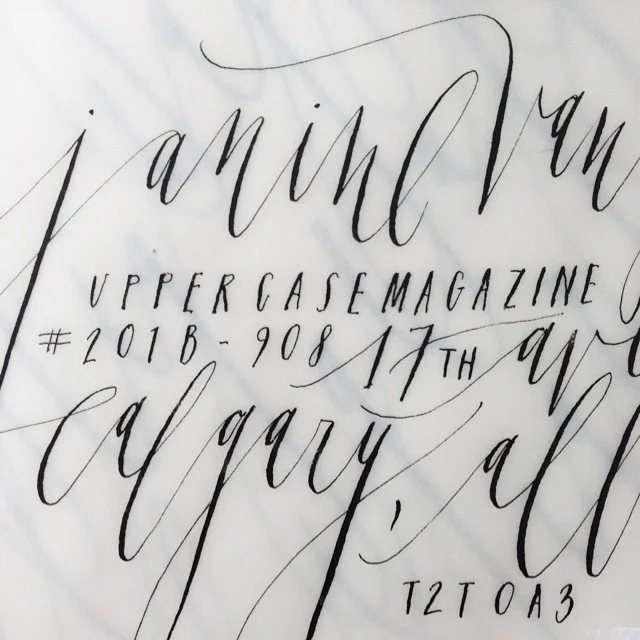 janine Van
UPPERCASE MAGAZINE
#201B-908 17TH ave
calgary, all
T2T 0A3